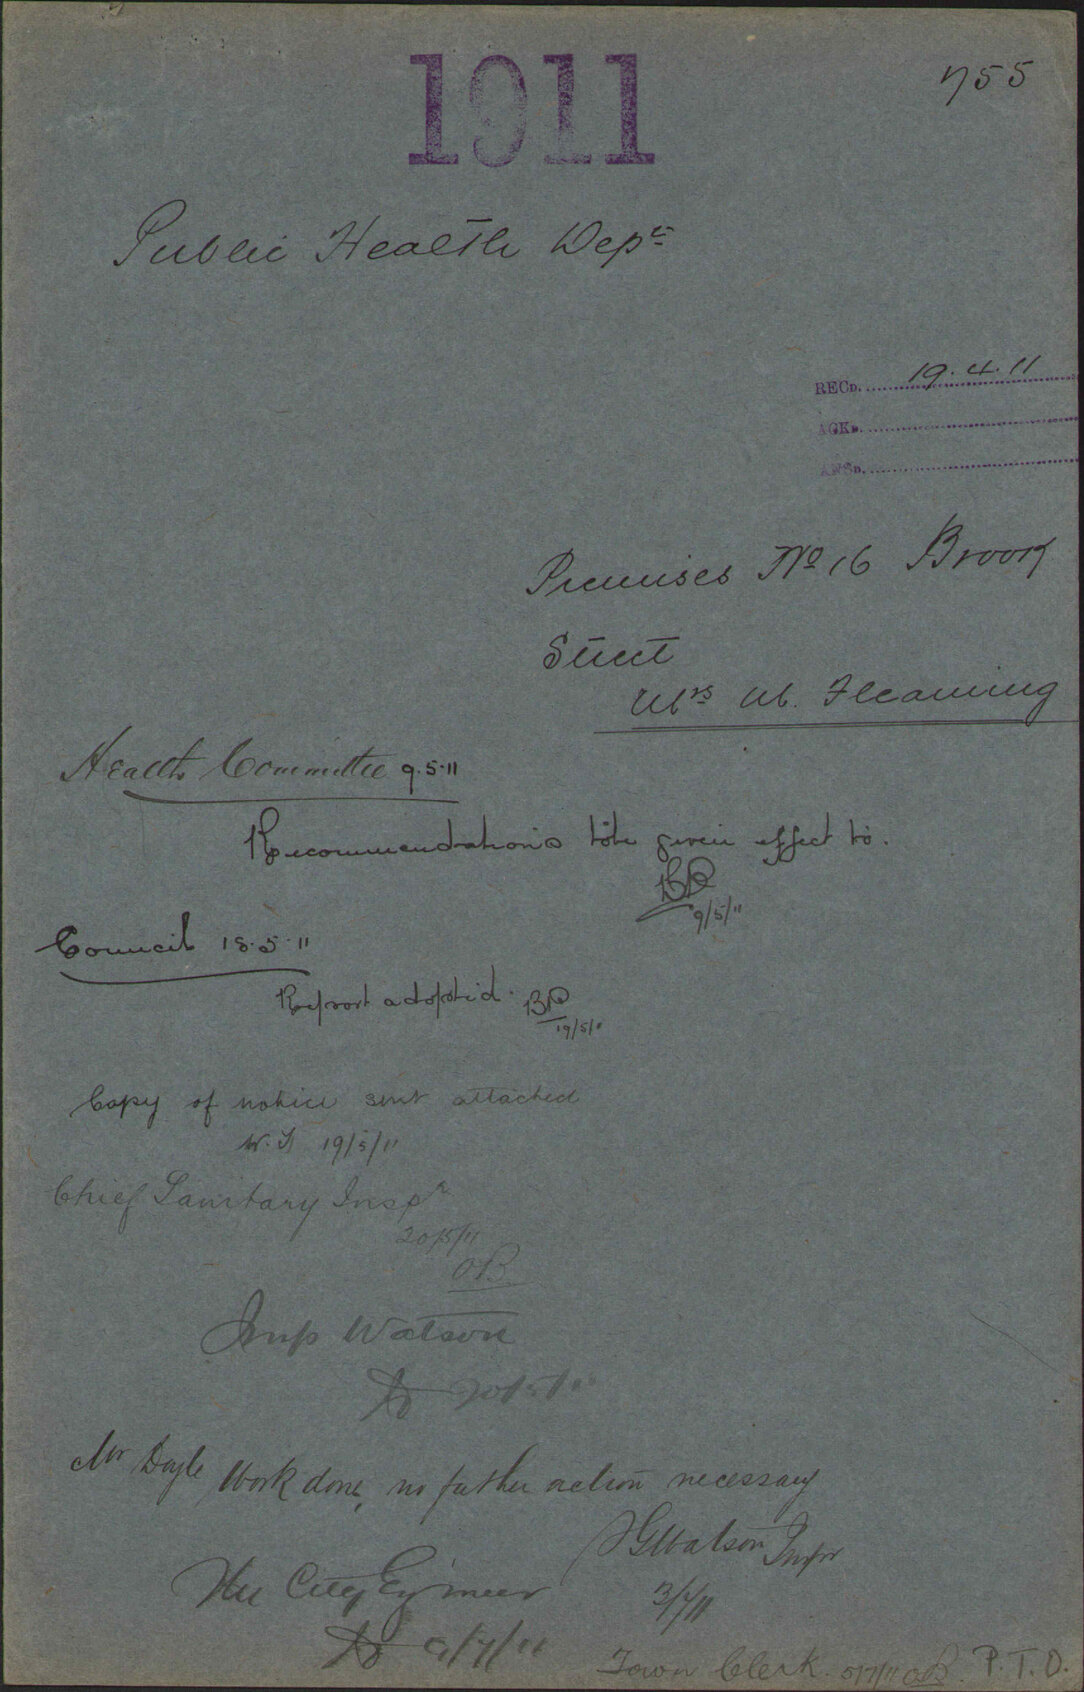 1911
755
Public Health Dept
RECD. 19.4.11
ACKD.
ANSD.
Premises No 16 Brook
Street
Mrs M. Fleaming
Health Committee 9.5.11
Recommendations to be given effect to.
BR
9/5/11
Council 18.5.11
Report adopted. BR
19/5/11
Copy of notice sent attached
19/5/11
Chief Sanitary Inspr
20/5/11
OB
Insp Watson
20/5/11
Mr Doyle Work done, no futher action necessary
Watson Inspr
3/7/11
The City Engineer
Town Clerk. 5/7/11 OB. P.T.O.